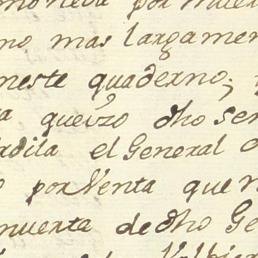 mo neva por muer
no mas largamen
neste quaderno; y
a queizo dho señ
rdila el General d
o por Venta que n
muerta de dho Ge